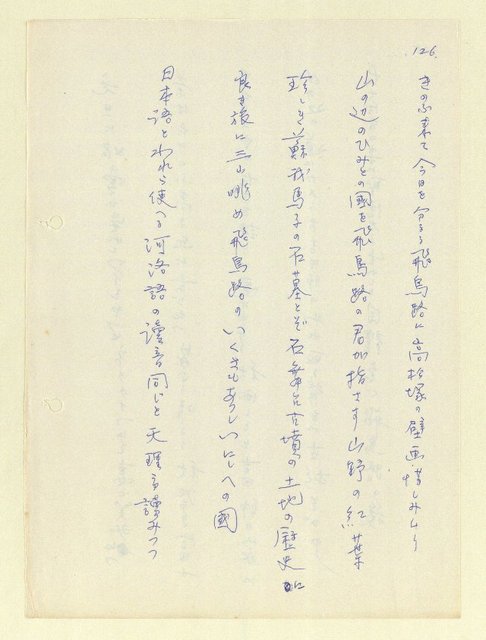 126.
きのふ来て今日も分る飛鳥路に高松塚の壁画惜しみけり
山の辺のひみとの国も飛鳥路の君が指さす山野の紅葉
珍しき蘇我馬子の石墓とぞ石舞台古墳の土地の歴史に
良き旅に三山眺め飛鳥路のいくさもありしいにしへの國
日本語とわれら使へる河洛語の讀音同じと天理言讀みつつ